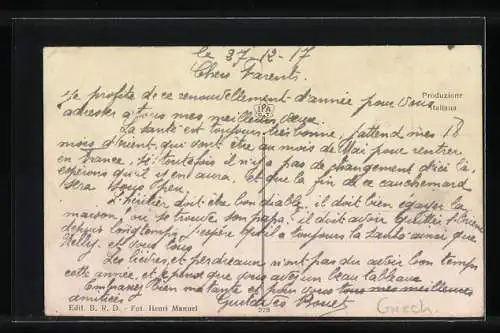 le 27-12-17
Chers Parents.
Je profite de ce renouvellement d'année pour vous
adresser à tous mes meilleurs vœux.
La santé est toujours très bonne, j'attend mes 18
mois d'orient, qui sont être au mois de Mai pour rentrer
en france, si toutefois il n'y a pas de changement d'ici là,
espérons qu'il y en aura. Et que la fin de ce cauchemard
sera sous peu.
L'héritier doit être bon diable, il doit bien égayer la
maison, où se trouve son papa? il doit avoir quitté
depuis longtemps, j'espère qu'il a toujours la santé ainsi que
Nelly, et vous tous.
Les lièvres et perdreaux n'ont pas du avoir bon temps
cette année, et je pense que vous avez un beau tableau
Embrassez bien ma tante et pour vous tous mes meilleures
amitiées
Produzione
Italiana
IPA
Edit. B. R. D. - Fot. Henri Manuel
279